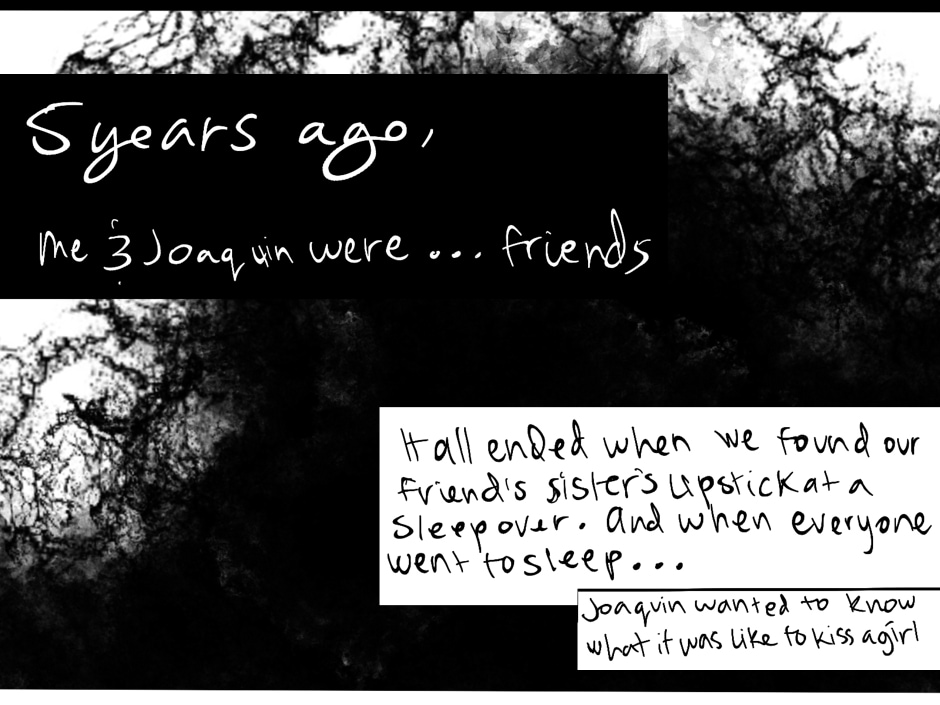 5 years ago,
me & Joaquin were ... friends
It all ended when we found our
friend's sister's lipstick at a
sleepover. And when everyone
went to sleep...
Joaquin wanted to know
what it was like to kiss a girl